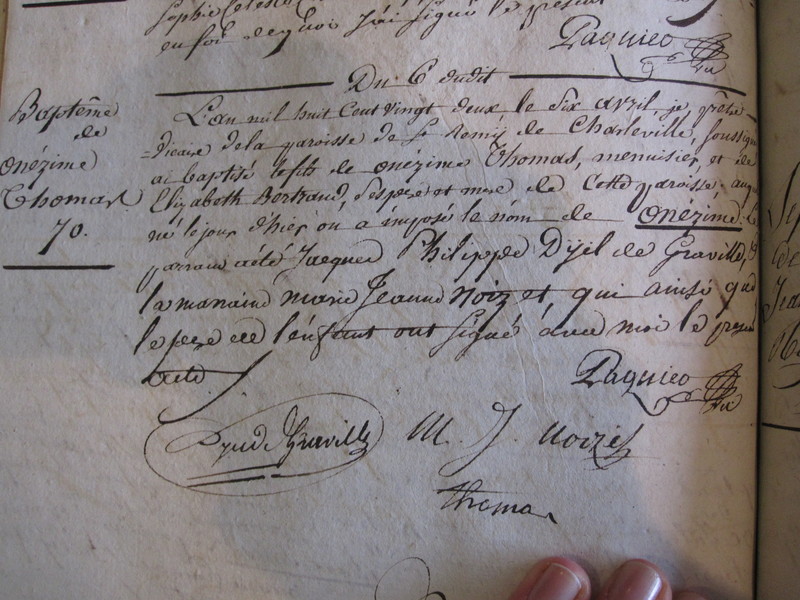 Sophie Celeste
en foi de quoi j'ai signé le present
Paquier
Du 6 dudit
Baptême
de
onézime
Thomas
70.
L'an mil huit Cent vingt deux le six avril, je, prêtre
=Vicaire de la paroisse de St Remy de Charleville, soussigné
ai baptisé le fils de onézime Thomas, menuisier, et de
Elizabeth Bertrand, ses pere et mere de Cette paroisse, auquel
né le jour d'hier on a imposé le nom de onézime. Le
parrain a été Jacques Philippe Dyel de Graville, &
la maraine marie Jeanne Noizet, qui ainsi que
le pere de l'enfant ont signé avec moi le present
acte
Paquier
Dyel de Graville
M. J. Noizet
thomas